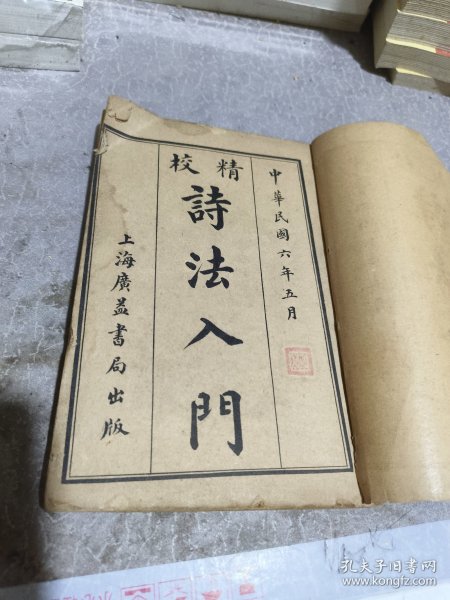 中華民國六年五月
精校
詩法入門
上海廣益書局出版
孔夫子旧书网
www.kongfz.com